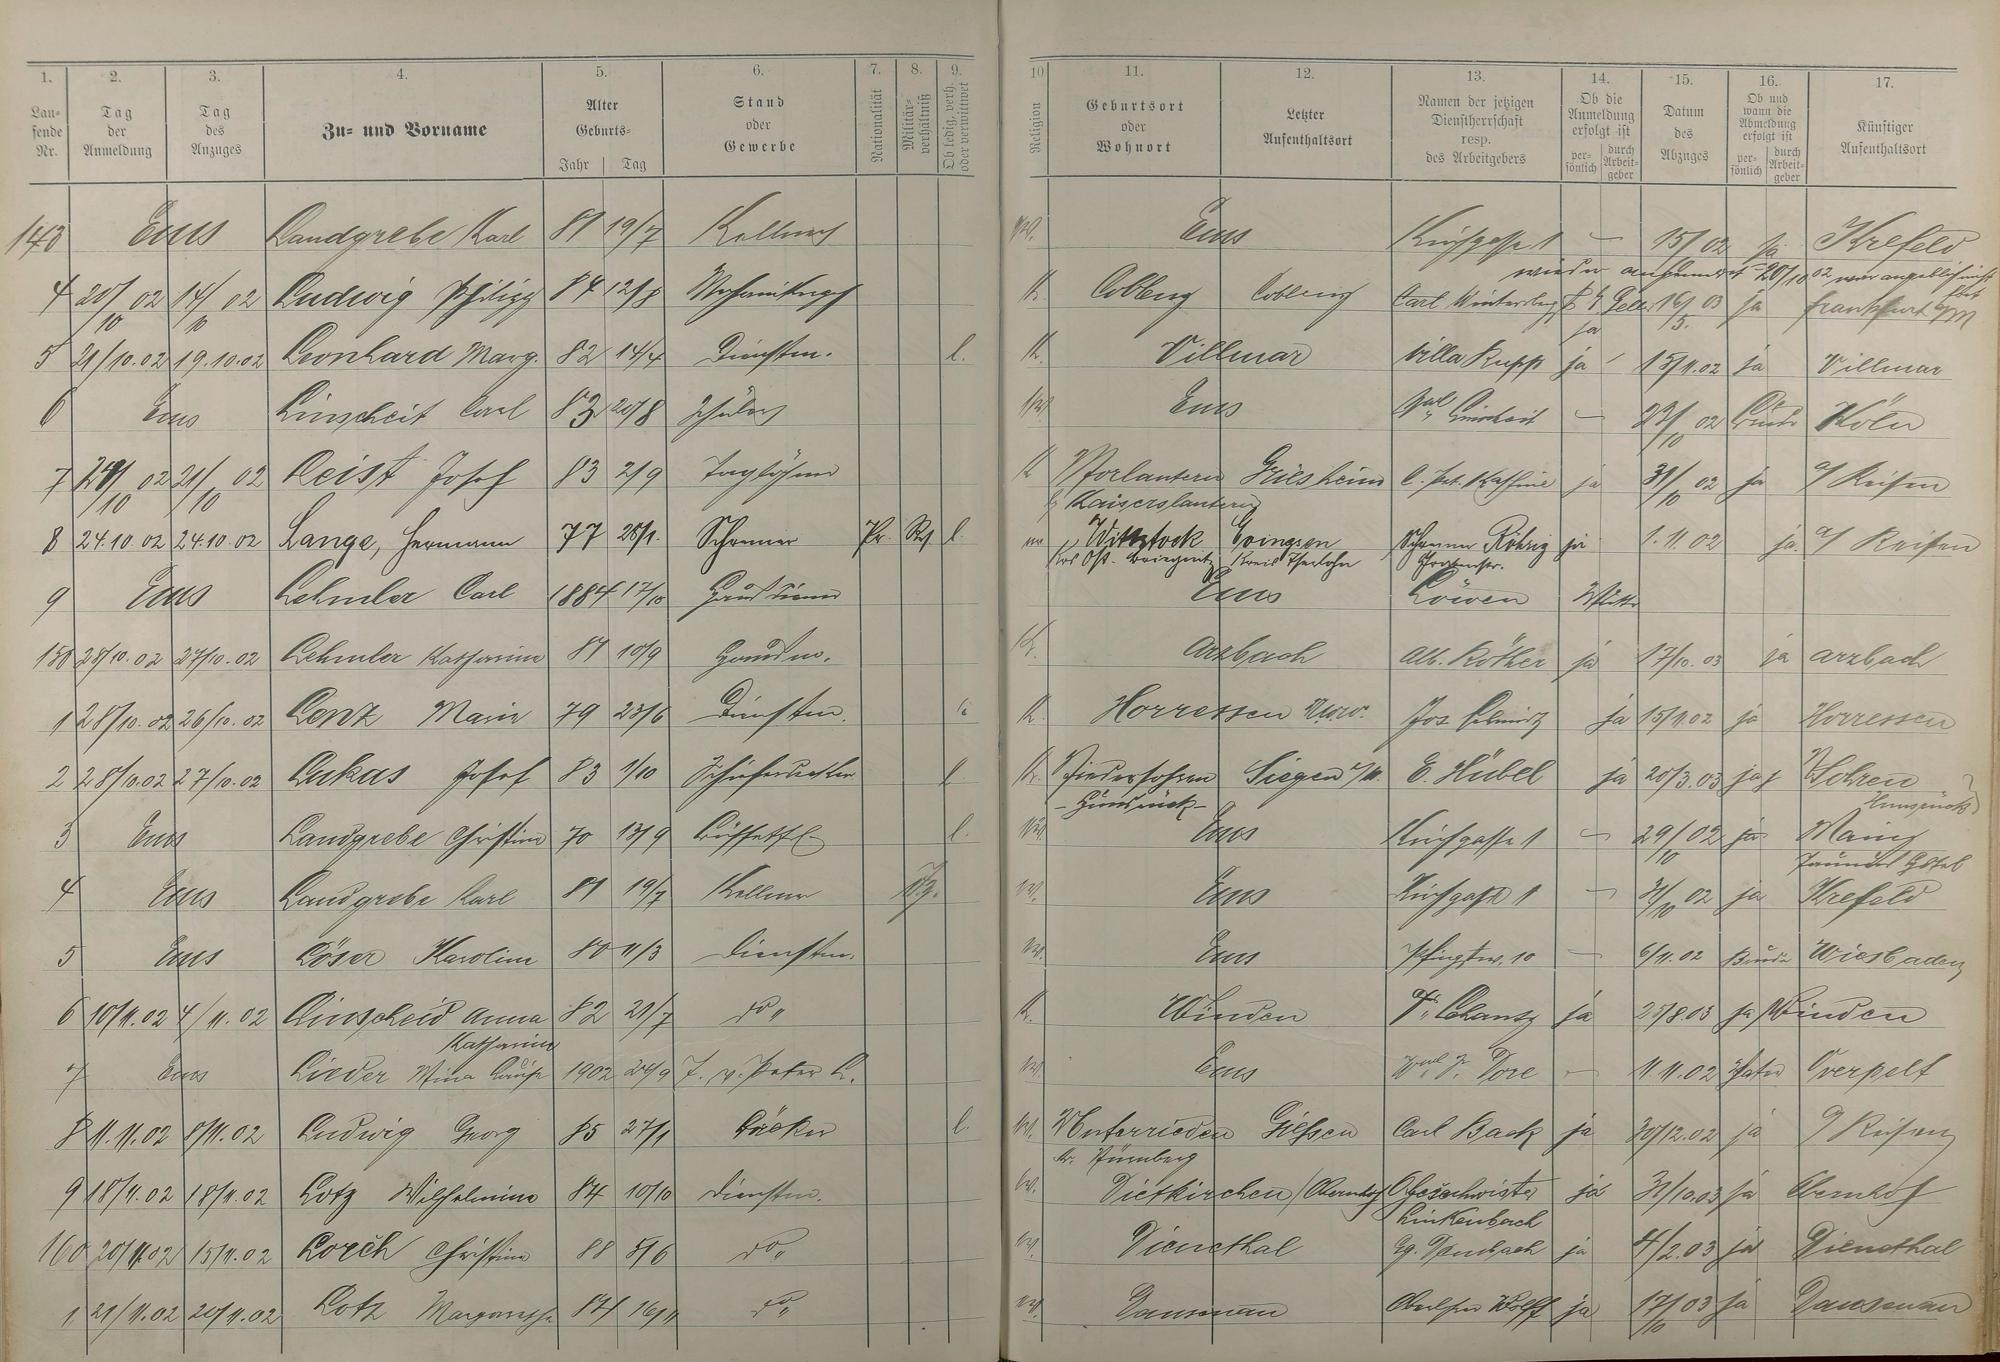 1. 2. 3. 4. 5. 6. 7. 8. 9. 10 11. 12. 13. 14. 15. 16. 17.
Laufende Nr. Tag der Anmeldung Tag des Anzuges Zu- und Vorname Alter Geburts- Jahr Tag Stand oder Gewerbe Nationalität Militärverhältniß Ob ledig, verh. oder verwittwet Religion Geburtsort oder Wohnort Letzter Aufenthaltsort Namen der jetzigen Dienstherrschaft resp. des Arbeitgebers Ob die Anmeldung erfolgt ist persönlich durch Arbeitgeber Datum des Abzuges Ob und wann die Abmeldung erfolgt ist persönlich durch Arbeitgeber Künftiger Aufenthaltsort
143 Ems Landgrebe Karl 81 19/7 Kellner Ems Kirchgasse 1 – 15/ 02 ja Krefeld
wieder angemeldet 20/10 02 war angeblich nicht fort
4 20/10 02 14/10 02 Ludwig Philipp 84 12/8 K. Coblenz Coblenz Carl ja 16/5. 03 ja Frankfurt a/M
5 21/10.02 19.10.02 Leonhard Marg. 82 14/4 Dienstm. l. K. Villmar Villa Rupp ja 15/11.02 ja Villmar
6 Ems Linscheit Carl 83 20/8 Schüler Ems – 23/10 02 Köln
7 24/10 02 21/10 02 Leist Josef 83 2/9 Taglöhner K Morlautern Griesheim ja 31/10 02 ja a/ Reisen
b/ Kaiserslautern
8 24.10.02 24.10.02 Lange, Hermann 77 28/1. Schreiner Pr. l. Wittstock Evingsen Schreiner Röhrig ja 1.11.02 ja. a/ Reisen
Krs Ost-Priegnitz Kreis Iserlohn
9 Ems Lehmler Carl 1884 17/10 Hausdiener Ems Löwen
150 28/10.02 27/10.02 Lehmler Katharina 81 10/9 K. Arzbach Alb. Röther ja 17/10.03 ja Arzbach
1 28/10.02 26/10.02 Lenz Marie 79 23/6 Dienstm. K. Horressen Jos Schmitz ja 15/11.02 ja Horressen
2 28/10.02 27/10.02 Lukas Josef 83 1/10 Schieferdecker l K. Niedersohren Siegen E. Hübel ja 20/3.03 ja Sohren
– Hunsrück – Hunsrück
3 Ems Landgrebe Christine 70 13/9 l. Ems Kirchgasse 1 – 29/10 02 ja Mainz
Hotel
4 Ems Landgrebe Karl 81 19/7 Kellner Ems Kirchgasse 1 – 31/10 02 ja Krefeld
5 Ems Löser Karoline 80 11/3 Dienstm. Ems Pfingstw. 10 – 6/11.02 Wiesbaden
6 10/11.02 4/11.02 Linscheid Anna 82 21/7 do " K. Winden ja 25/8.03 ja Winden
Katharina
7 Ems Lieder Mina Luise 1902 24/9 T. v. Peter L. Ems – 11.11.02 Vater Overpelt
8 11.11.02 8/11.02 Ludwig Georg 85 27/1 Bäcker l. Unterrieden Giessen Carl Back ja 30/12.02 ja a/ Reisen
Kr. Nürnberg
9 18/11.02 18/11.02 Lotz Wilhelmine 84 10/10 Dienstm. Dietkirchen / Obernhof Geschwister ja 31/10.03 ja Obernhof
Linkenbach
160 20/11.02 15/11.02 Lorch Christine 88 5/6 do " Dienethal ja 4/2.03 ja Dienethal
1 21/11.02 20/11.02 Lotz Margaretha 84 16/11 do " Dausenau Wolff ja 17/10 03 ja Dausenau